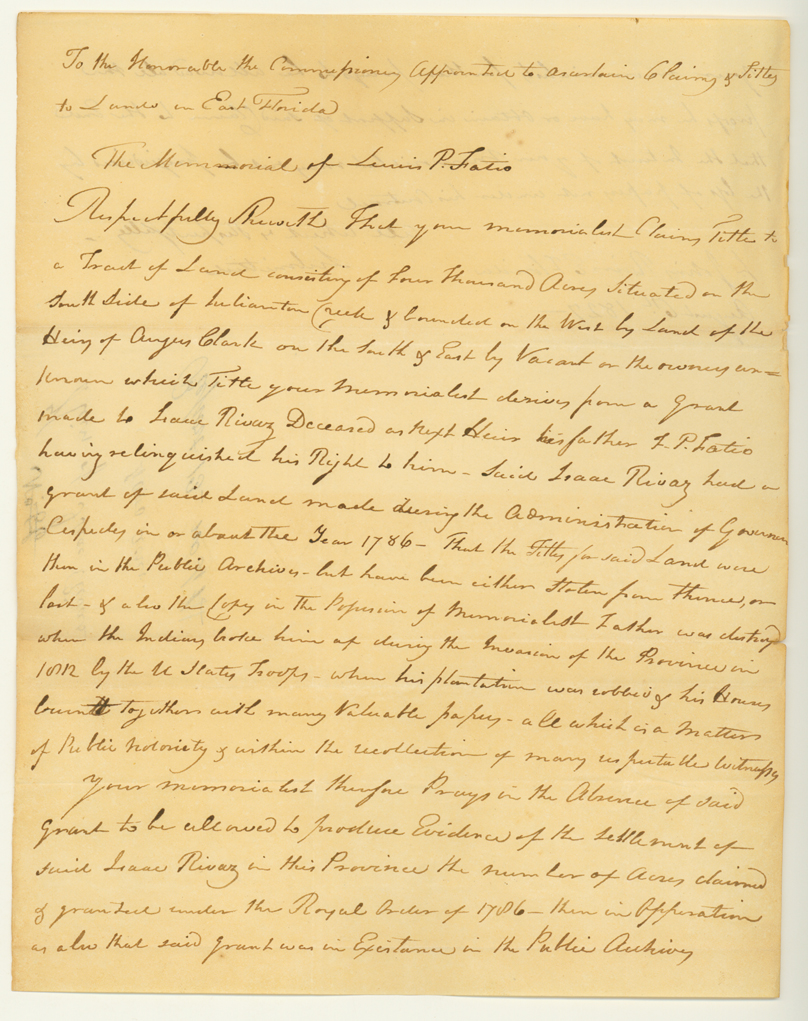 To the Honorable the Commissioners Appointed to ascertain Claims & Titles
to Lands in East Florida
The Memmorial of Lewis P. Fatio
Respectfully Sheweth That your memorialist Claims Title to
a Tract of Land consisting of four thousand Acres Situated on the
South Side of Julianton Creek & bounded on the West by Land of the
Heirs of Angus Clark on the South & East by Vacant or the owners un=
known which Title your Memorialist derives from a Grant
made to Isaac Rivaz Deceased as next Heir his father F. P. Fatio
having relinquished his Right to him - Said Isaac Rivaz had a
grant of said Land made during the Administration of Governor
Cespedes in or about the Year 1786 - That the Titles for said Land were
then in the Public Archives - but have been either Stolen from thence, or
lost - & also the Copy in the Possession of Memorialist Father was destroyd
when the Indians broke him up during the Invasion of the Province in
1812 by the U States Troops - when his plantation was robbed & his Houses
burnt togethers with many Valuable papers - all which is a Matters
of Public Notoriety & within the recollection of many respectable Witnesses
Your memorialist therefore Prays in the Absence of said
grant to be allowed to produce Evidence of the settlement of
said Isaac Rivaz in this Province the number of Acres claimed
& granted under the Royal Order of 1786 - then in Opperation
as also that said grant was in Existance in the Public Archives